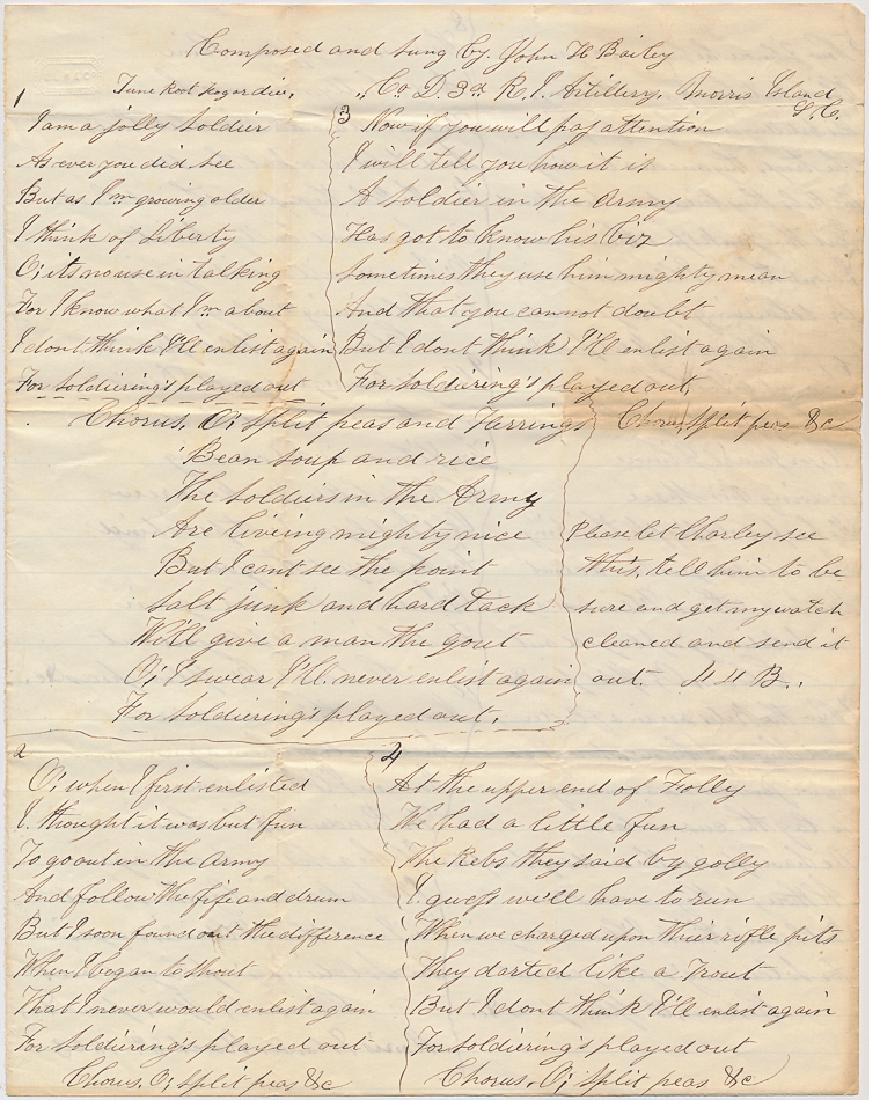 Composed and sung by John H Bailey
Tune Root hog or die,
,, Co D. 3d R. I. Artillery, Morris Island
S. C.
1
I am a jolly soldier
As ever you did see
But as I'm growing older
I think of Liberty
O; its no use in talking
For I know what I'm about
I dont think I'll enlist again
For soldiering's played out
Chorus, O; split peas and Harrings
Bean soup and rice
The soldiers in the Army
Are liveing mighty nice
But I cant see the point
Salt junk and hard tack
Will give a man the gout
O; I swear I'll never enlist again
For soldiering's played out.
2
O; when I first enlisted
I thought it was but fun
To go out in the army
And follow the fife and drum
But I soon found out the difference
When I began to shout
That I never would enlist again
For soldiering's played out
Chorus, O; split peas &c
3
Now if you will pay attention
I will tell you how it is
A soldier in the army
Has got to know his biz
Sometimes they use him mighty mean
And that you cannot doubt
But I dont think I'll enlist again
For soldiering's played out,
Chorus, split peas &c
Please let Charley see
this, tell him to be
sure and get my watch
cleaned and send it
out.
4
At the upper end of Folly
We had a little fun
The Rebs they said by golly
I guess we'll have to run
When we charged upon thier rifle pits
They darted like a Trout
But I dont think I'll enlist again
For soldiering's played out
Chorus, O; split peas &c